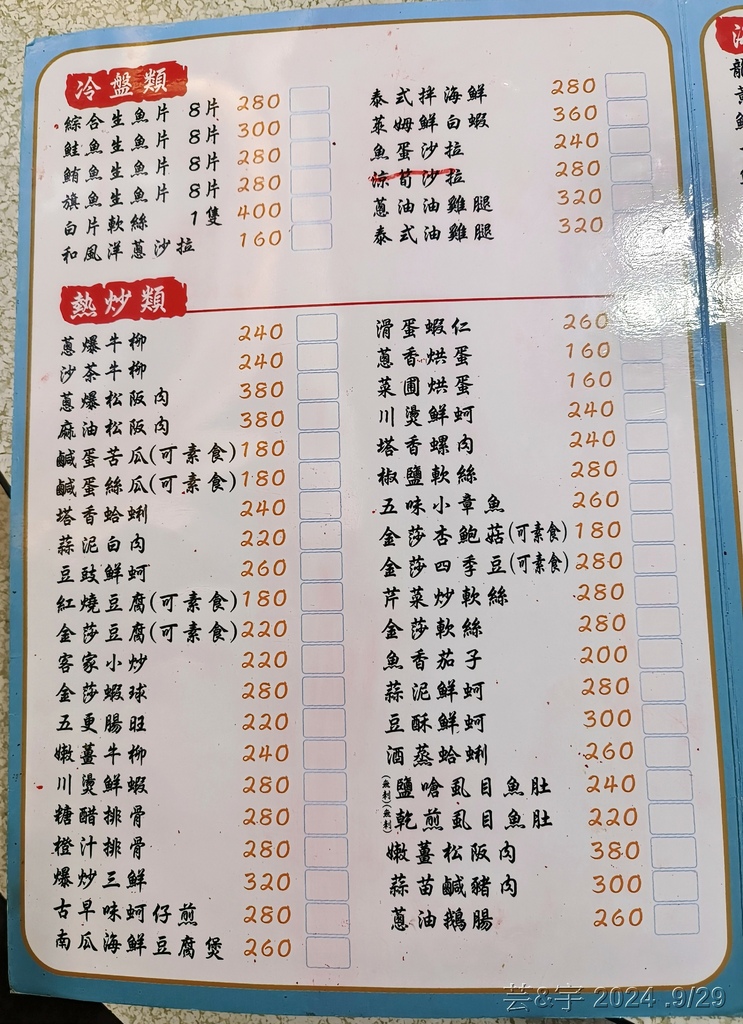 冷盤類
綜合生魚片 8片 280
鮭魚生魚片 8片 300
鮪魚生魚片 8片 280
旗魚生魚片 8片 280
白片軟絲 1隻 400
和風洋蔥沙拉 160
泰式拌海鮮 280
萊姆鮮白蝦 360
魚蛋沙拉 240
涼筍沙拉 280
蔥油油雞腿 320
泰式油雞腿 320
熱炒類
蔥爆牛柳 240
沙茶牛柳 240
蔥爆松阪肉 380
麻油松阪肉 380
鹹蛋苦瓜(可素食) 180
鹹蛋絲瓜(可素食) 180
塔香蛤蜊 240
蒜泥白肉 220
豆豉鮮蚵 260
紅燒豆腐(可素食) 180
金莎豆腐(可素食) 220
客家小炒 220
金莎蝦球 280
五更腸旺 220
嫩薑牛柳 240
川燙鮮蝦 280
糖醋排骨 280
橙汁排骨 280
爆炒三鮮 320
古早味蚵仔煎 280
南瓜海鮮豆腐煲 260
滑蛋蝦仁 260
蔥香烘蛋 160
菜圃烘蛋 160
川燙鮮蚵 240
塔香螺肉 240
椒鹽軟絲 280
五味小章魚 260
金莎杏鮑菇(可素食) 180
金莎四季豆(可素食) 280
芹菜炒軟絲 280
金莎軟絲 280
魚香茄子 200
蒜泥鮮蚵 280
豆酥鮮蚵 300
酒蒸蛤蜊 260
(無刺)鹽嗆虱目魚肚 240
(無刺)乾煎虱目魚肚 220
嫩薑松阪肉 380
蒜苗鹹豬肉 300
蔥油鵝腸 260
芸&宇 2024 .9/29